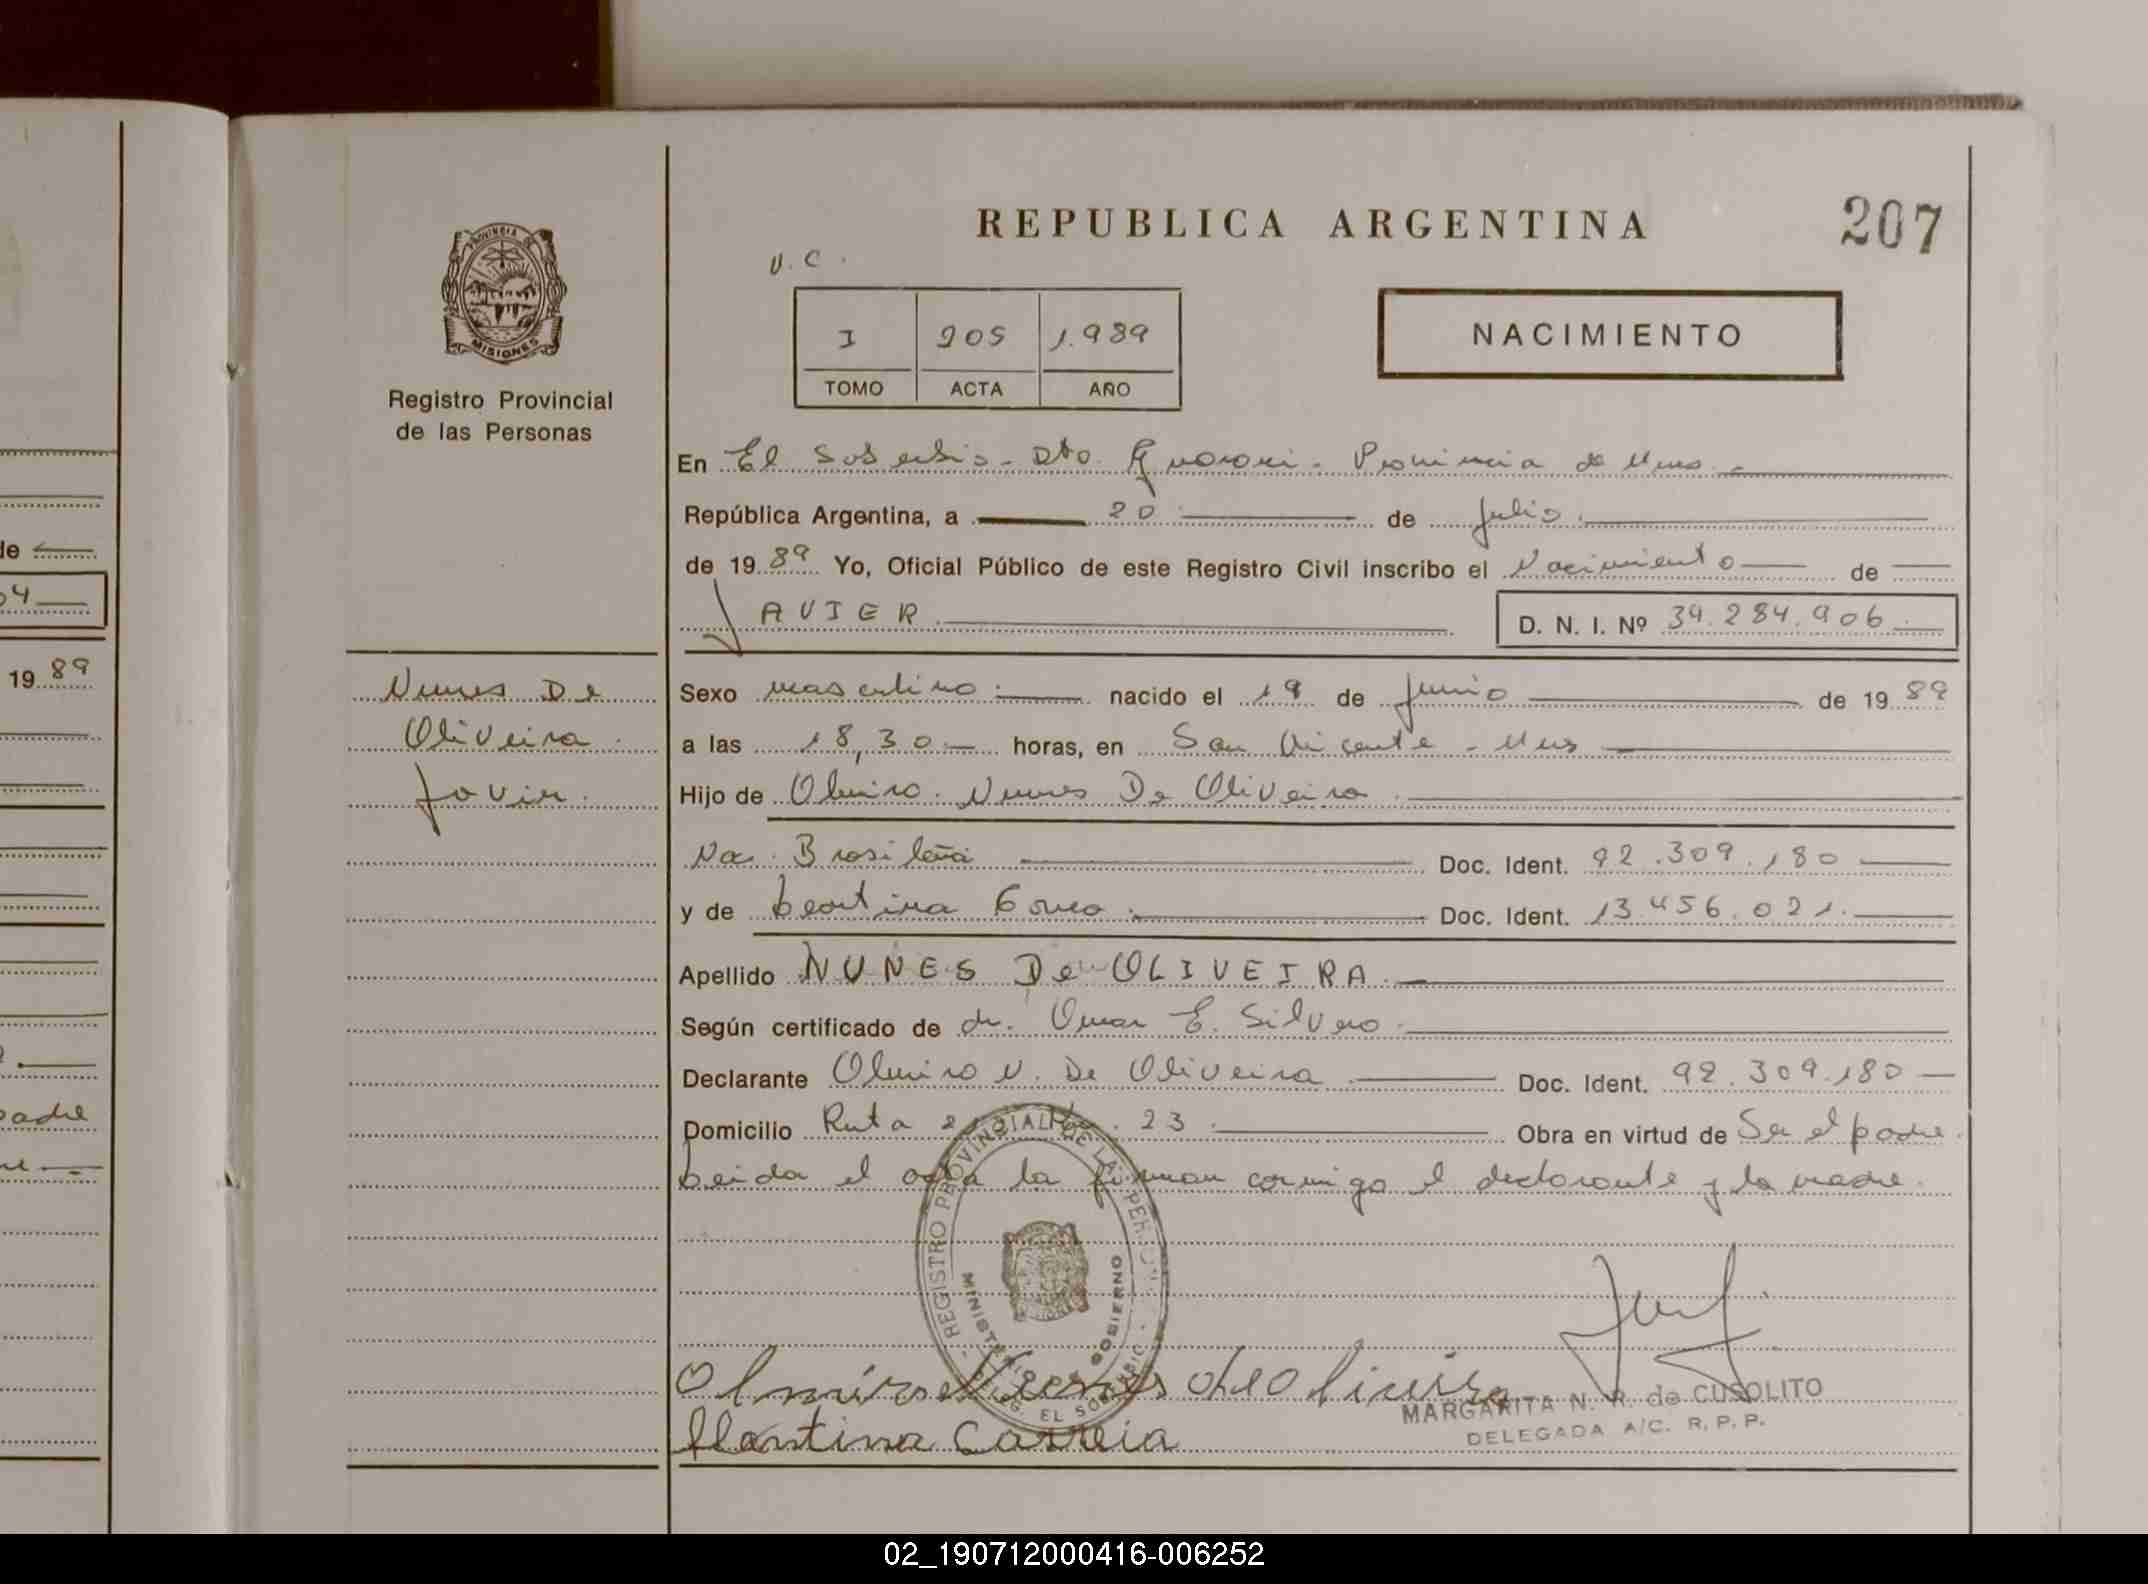 REPUBLICA ARGENTINA
207
PROVINCIA DE
MISIONES
Registro Provincial
de las Personas
V. C.
I 205 1.989
TOMO ACTA AÑO
NACIMIENTO
En El Soberbio - Dto. Guarani - Provincia de Mnes.
República Argentina, a 20 de Julio
de 1989 Yo, Oficial Público de este Registro Civil inscribo el Nacimiento de
JAVIER
D. N. I. Nº 34.284.906
Nunes De
Oliveira
Javier.
Sexo masculino nacido el 19 de Junio de 1989
a las 18,30 horas, en San Vicente - Mnes
Hijo de Olmiro Nunes De Oliveira
Nac. Brasileña Doc. Ident. 92.309.180
y de Leontina Doc. Ident. 13.456.021.
Apellido NUNES De OLIVEIRA.
Según certificado de dr. Omar E. Silvero
Declarante Olmiro N. De Oliveira Doc. Ident. 92.309.180
Domicilio Ruta 2 Km. 23 Obra en virtud de Ser el padre.
Leida el acta la firman conmigo el declarante y la madre.
REGISTRO PROVINCIAL DE LAS PERSONAS
MINISTERIO GOBIERNO
DELEG. EL SOBERBIO
Olmiro Nunes de Oliveira
MARGARITA N. R. de CUSOLITO
DELEGADA A/C. R. P. P.
Leontina Correia
de
04
1989
padre
02_190712000416-006252